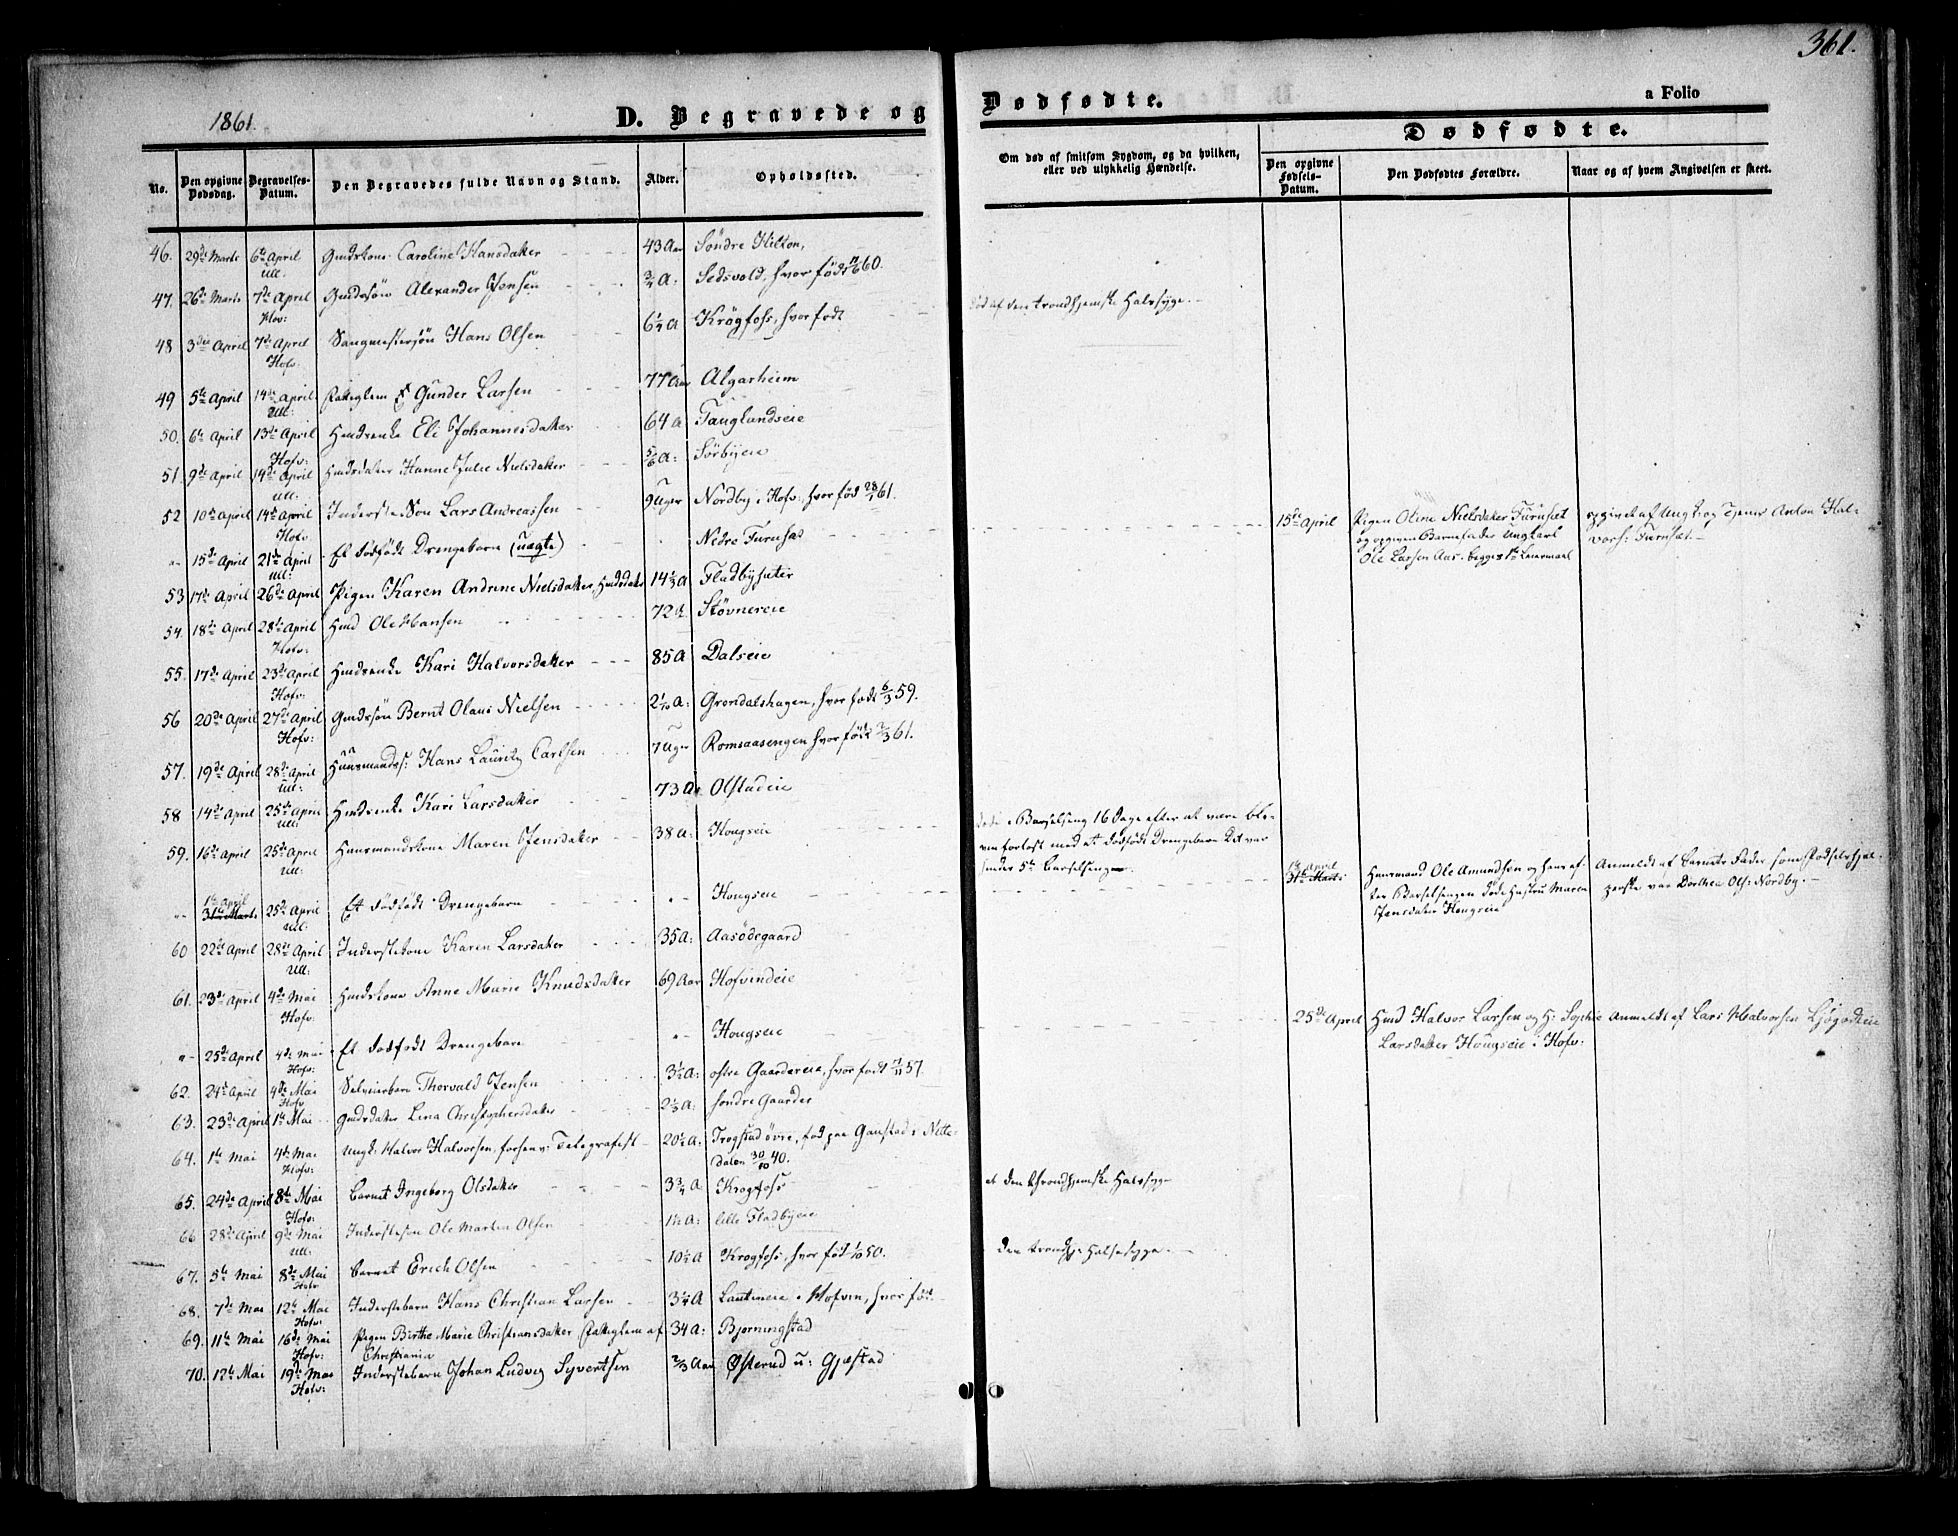 361.
1861.
D. Begravede og
Dødfødte.
a Folio
No.
Den opgivne Dødsdag.
Begravelses-Datum.
Den Begravedes fulde Navn og Stand.
Alder.
Opholdssted.
Om død af smitsom Sygdom, og da hvilken, eller ved ulykkelig Hændelse.
Dødfødte.
Den opgivne Fødsels-Datum.
Den Dødfødtes Forældre.
Naar og af hvem Angivelsen er skeet.
46. 29de Marts 6te April Ull: Gmdskone Caroline Hansdatter 43 Aar Søndre Hilton,
47. 26de Marts 7de April Hov: Gmdssøn Alexander Jensen 3/4 A: Sedsvold, hvor født 60. død af den trondhjemske Halssyge.
48 3die April 7de April Hofv. Sangmestersøn Hans Olsen 6 1/4 A Krogfoss, hvor født
49 5te April 14de April Ull: Gunder Larsen 77 Aar Algarheim
50. 6te April 13de April Hofv: Hmdsenke Eli Johannesdatter 64 A Fauglandseie
51. 9de April 14de April Ull: Hmdsdatter Hanne Julie Nielsdatter 5/6 A: Sørbyeie
52 10de April 14de April Hofv Inderste Søn Lars Andreassen 9 Uger Nordby i Hofv:, hvor fød 28/1 61.
" 15de April 21de April Ull: Et dødfødt Drengebarn (uægte) Nedre Furuset
15de April Pigen Oline Nielsdatter Furuset
og opgiven Barnefader Ungkarl
Ole Larsen Aas. begges 1te Leiermaal
opgivet af Ungk. og Tjener Anton Hal-
vors: Furuset.
53 17de April 26de April Pigen Karen Andrine Nielsdatter, Hmdsdatter 14 2/3 A Fladbysæter
54. 18de April 28de April Hofv: Hmd Ole Hansen 72 A Støvnereie
55. 17de April 23de April Hofv: Hmdsenke Kari Halvorsdatter 85 A Dalseie
56 20de April 27de April Hofv: Gmdssøn Bernt Olaus Nielsen 2 1/10 A: Grøndalshagen, hvor født 6/3 59.
57. 19de April 28de April Ull: Huusmandss: Hans Lauritz Carlsen 7 Uger Romsaasengen hvor født 2/3 61.
58 14de April 25de April Ull: Hmdsenke Kari Larsdatter 73 A Olstadeie
59. 16de April 25de April Ull: Huusmandskone Maren Jensdatter 38 A: Hougseie
døde i Barselseng 16 Dage efter at være ble-
ven forløst med et dødfødt Drengebarn Det var
hendes 5te Barselseng
" 1te April 31te Marts 25de April Ull: Et dødfødt Drengebarn Hougseie
1te April 31te Marts Huusmand Ole Amundsen og hans ef-
ter Barselsengen døde Hustru Maren
Jensdatter Hougseie
Anmeldt af Barnets Fader som Fødselshjæl-
perske var Dorthea Ols: Nordby.
60 22de April 28de April Ull: Inderstekone Karen Larsdatter 35 A: Aasødegaard
61. 23de April 4de Mai Hofv: Hmdskone Anne Marie Knudsdatter 69 Aar Hofvindeie
" 25de April 4de Mai Hofv: Et dødfødt Drengebarn Hougseie
25de April Hmd Halvor Larsen og H: Sophie
Larsdatter Hougseie i Hofv:
Anmeldt af Lars Halvorsen Ljøgodteie
62. 24de April 4de Mai Hofv Selveierbarn Thorvald Jensen 3 1/2 A: østre Gaardereie, hvor født 57.
63. 23de April 1te Mai Gmdsdatter Lina Christophersdatter 2 1/3 A: søndre Gaarder
64. 1te Mai 4de Mai Hofv: Ungk: Halvor Halvorsen forhenv: Telegrafist 20 1/2 A: Trøgstad øvre, fød paa Gaustad i Nitte-
dalen 30/10 40.
65. 24de April 8de Mai Hofv: Barnet Ingeborg Olsdatter 3 3/4 A Krogfoss
af den throndhjemske Halssyge
66 28de April 9de Mai Ull: Inderstesøn Ole Martin Olsen 1 1/2 A: lille Fladbyeie
67. 5te Mai 8de Mai Hofv Barnet Erich Olsen 10 1/2 A Krogfoss, hvor fød 1/10 50.
den trondhj: Halssyge.
68. 7de Mai 12te Mai Hofv: Inderstebarn Hans Christian Larsen 3 1/4 A Lauteneie i Hofvin, hvor fød.
69. 11te Mai 16de Mai Hofv: Pigen Birthe Marie Christiansdatter Fattiglem af
Christiania 34 A: Bjørningstad
70. 12te Mai 19de Mai Hofv: Inderstebarn Johan Ludvig Syvertsen 2/3 Aar Østerud u: Gjæstad